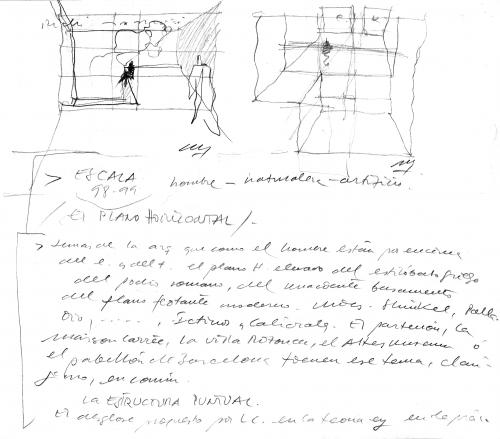 > ESCALA hombre – naturaleza – artificio.
98-99
/EL PLANO HORIZONTAL/.-
> Temas de la arq que como el hombre están por encima
del e. y del t. el plano H elevado del estilobato griego
del podio romano, del basamento
del plano flotante moderno. Mies. Shinkel, Palla
dio, ....., Ictino y Calicrates. El partenón, la
maison Carrée, la villa Rotonda, el Altes Museum o
el pabellón de Barcelona tienen ese tema, clarí-
simo, en común.
LA ESTRUCTURA PUNTUAL.
El desglose propuesto por L.C. en la teoría y en la prác